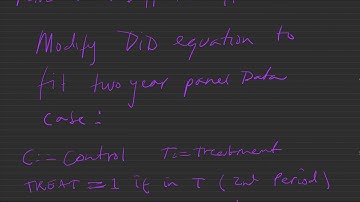 Modify DiD equation to
fit two year panel Data
case:
C:= Control T:= Treatment
TREAT = 1 if in T (2nd Period)